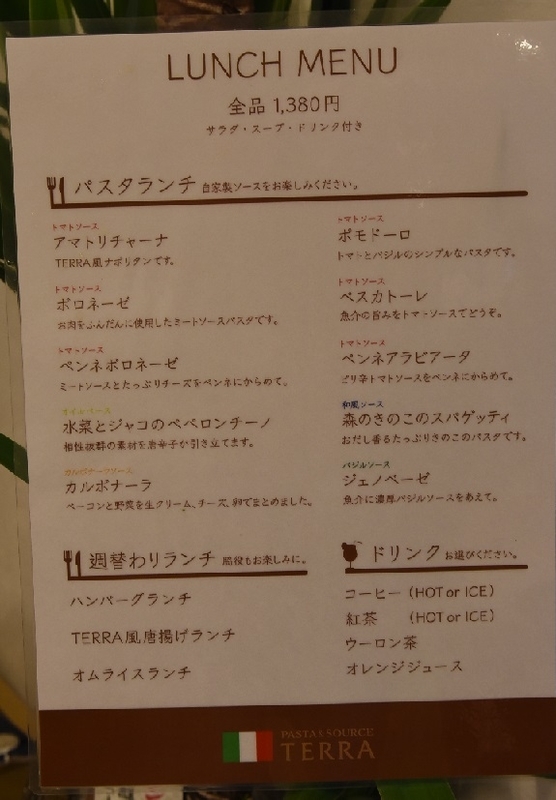 LUNCH MENU
全品 1,380円
サラダ・スープ・ドリンク付き
パスタランチ 自家製ソースをお楽しみください。
トマトソース
アマトリチャーナ
TERRA風ナポリタンです。
トマトソース
ボロネーゼ
お肉をふんだんに使用したミートソースパスタです。
トマトソース
ペンネボロネーゼ
ミートソースとたっぷりチーズをペンネにからめて。
オイルソース
水菜とジャコのペペロンチーノ
相性抜群の素材を唐辛子が引き立てます。
カルボナーラソース
カルボナーラ
ベーコンと野菜を生クリーム、チーズ、卵でまとめました。
トマトソース
ポモドーロ
トマトとバジルのシンプルなパスタです。
トマトソース
ペスカトーレ
魚介の旨みをトマトソースでどうぞ。
トマトソース
ペンネアラビアータ
ピリ辛トマトソースをペンネにからめて。
和風ソース
森のきのこのスパゲッティ
おだし香るたっぷりきのこのパスタです。
バジルソース
ジェノベーゼ
魚介に濃厚バジルソースをあえて。
週替わりランチ 脇役もお楽しみに。
ハンバーグランチ
TERRA風唐揚げランチ
オムライスランチ
ドリンク お選びください。
コーヒー (HOT or ICE)
紅茶 (HOT or ICE)
ウーロン茶
オレンジジュース
PASTA & SOURCE
TERRA